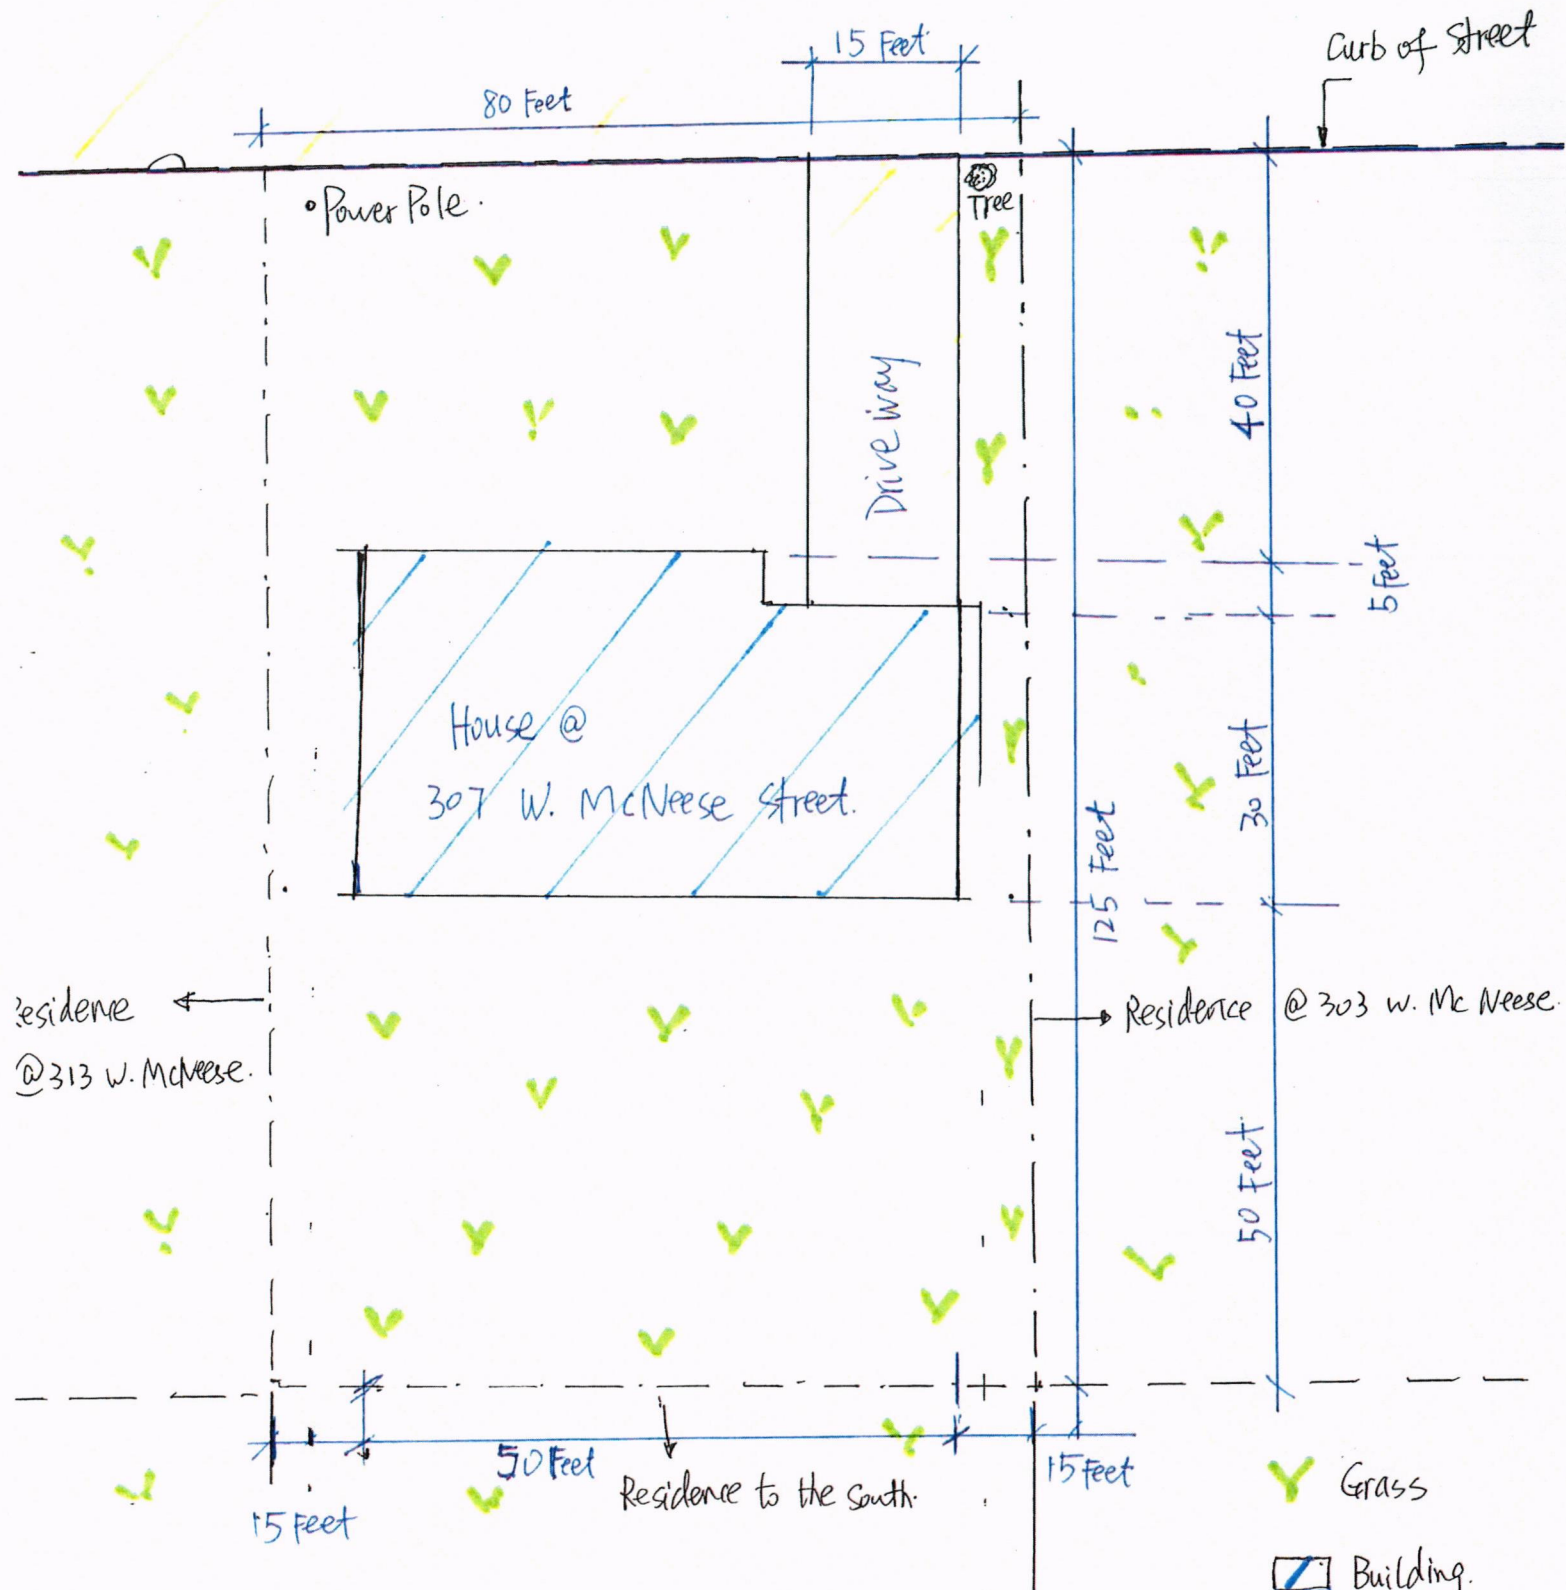 15 Feet
Curb of Street
80 Feet
Power Pole.
Tree
Driveway
40 Feet
5 Feet
House @
307 W. McNeese Street.
30 Feet
125 Feet
esidence
@ 313 W. McNeese.
Residence @ 303 W. Mc Neese.
50 Feet
50 Feet
15 Feet
Residence to the South.
15 Feet
Grass
Building.